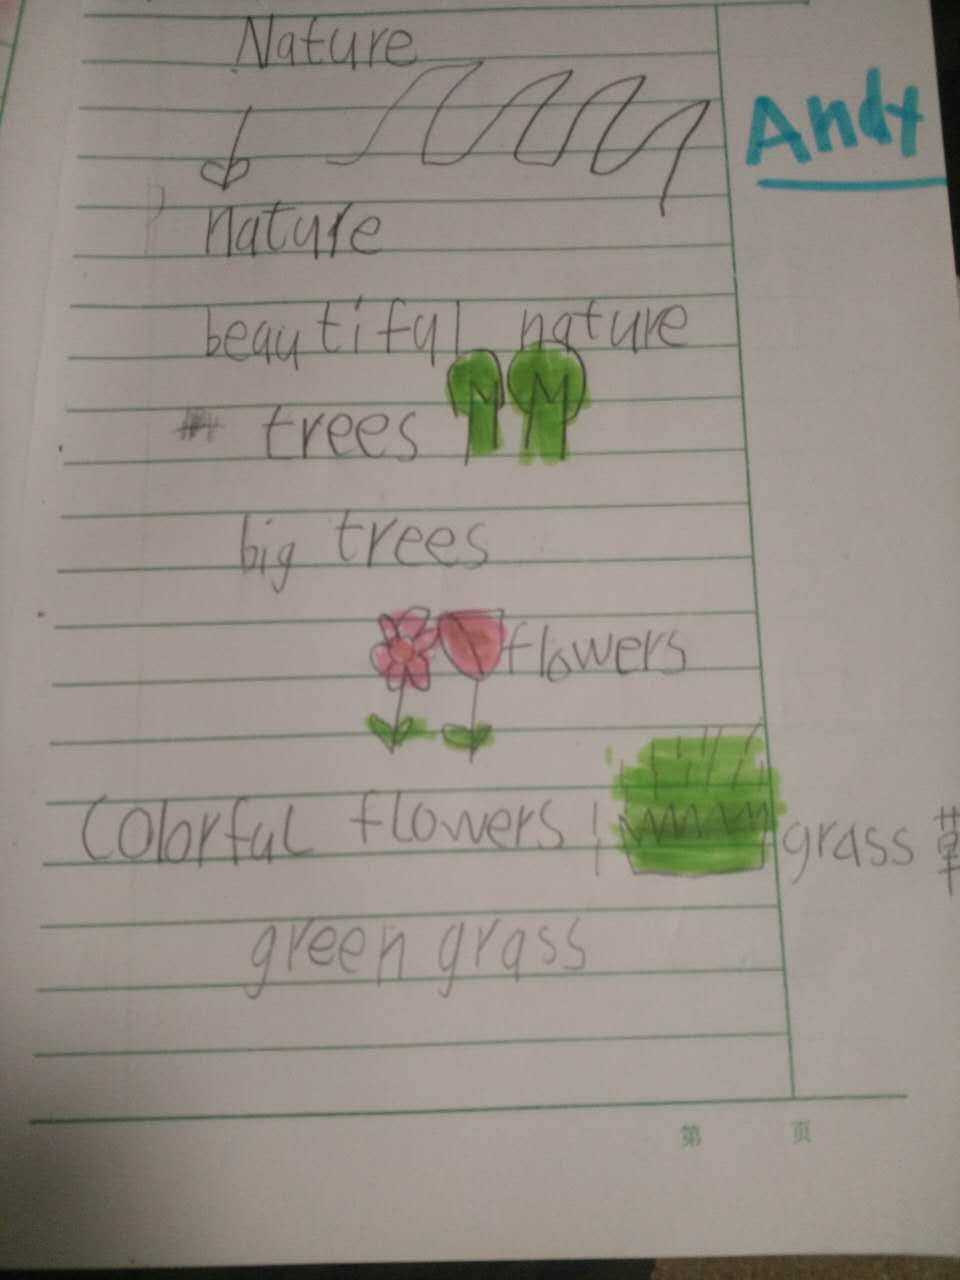 Nature
Andy
nature
beautiful nature
trees
big trees
flowers
Colorful flowers
grass 草
green grass
第 页